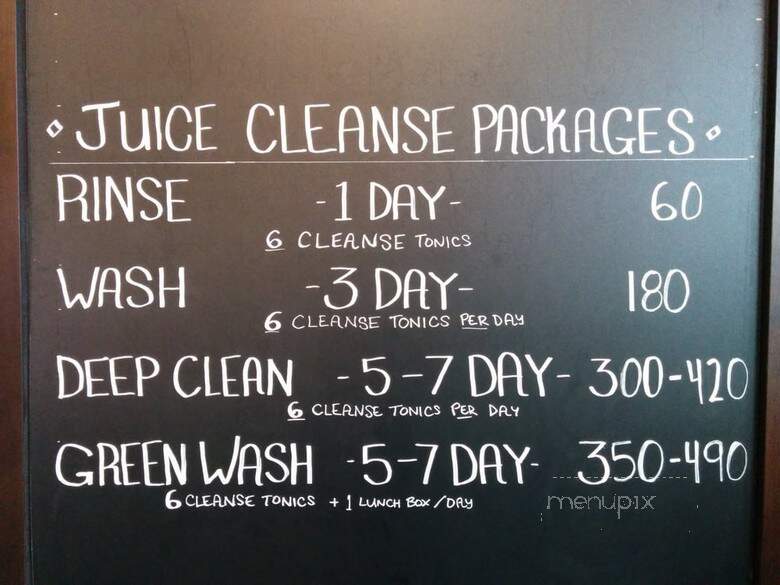 ◇ JUICE CLEANSE PACKAGES ◇
RINSE -1 DAY- 60
6 CLEANSE TONICS
WASH -3 DAY- 180
6 CLEANSE TONICS PER DAY
DEEP CLEAN -5-7 DAY- 300-420
6 CLEANSE TONICS PER DAY
GREEN WASH -5-7 DAY- 350-490
6 CLEANSE TONICS + 1 LUNCH BOX/DAY
menupix